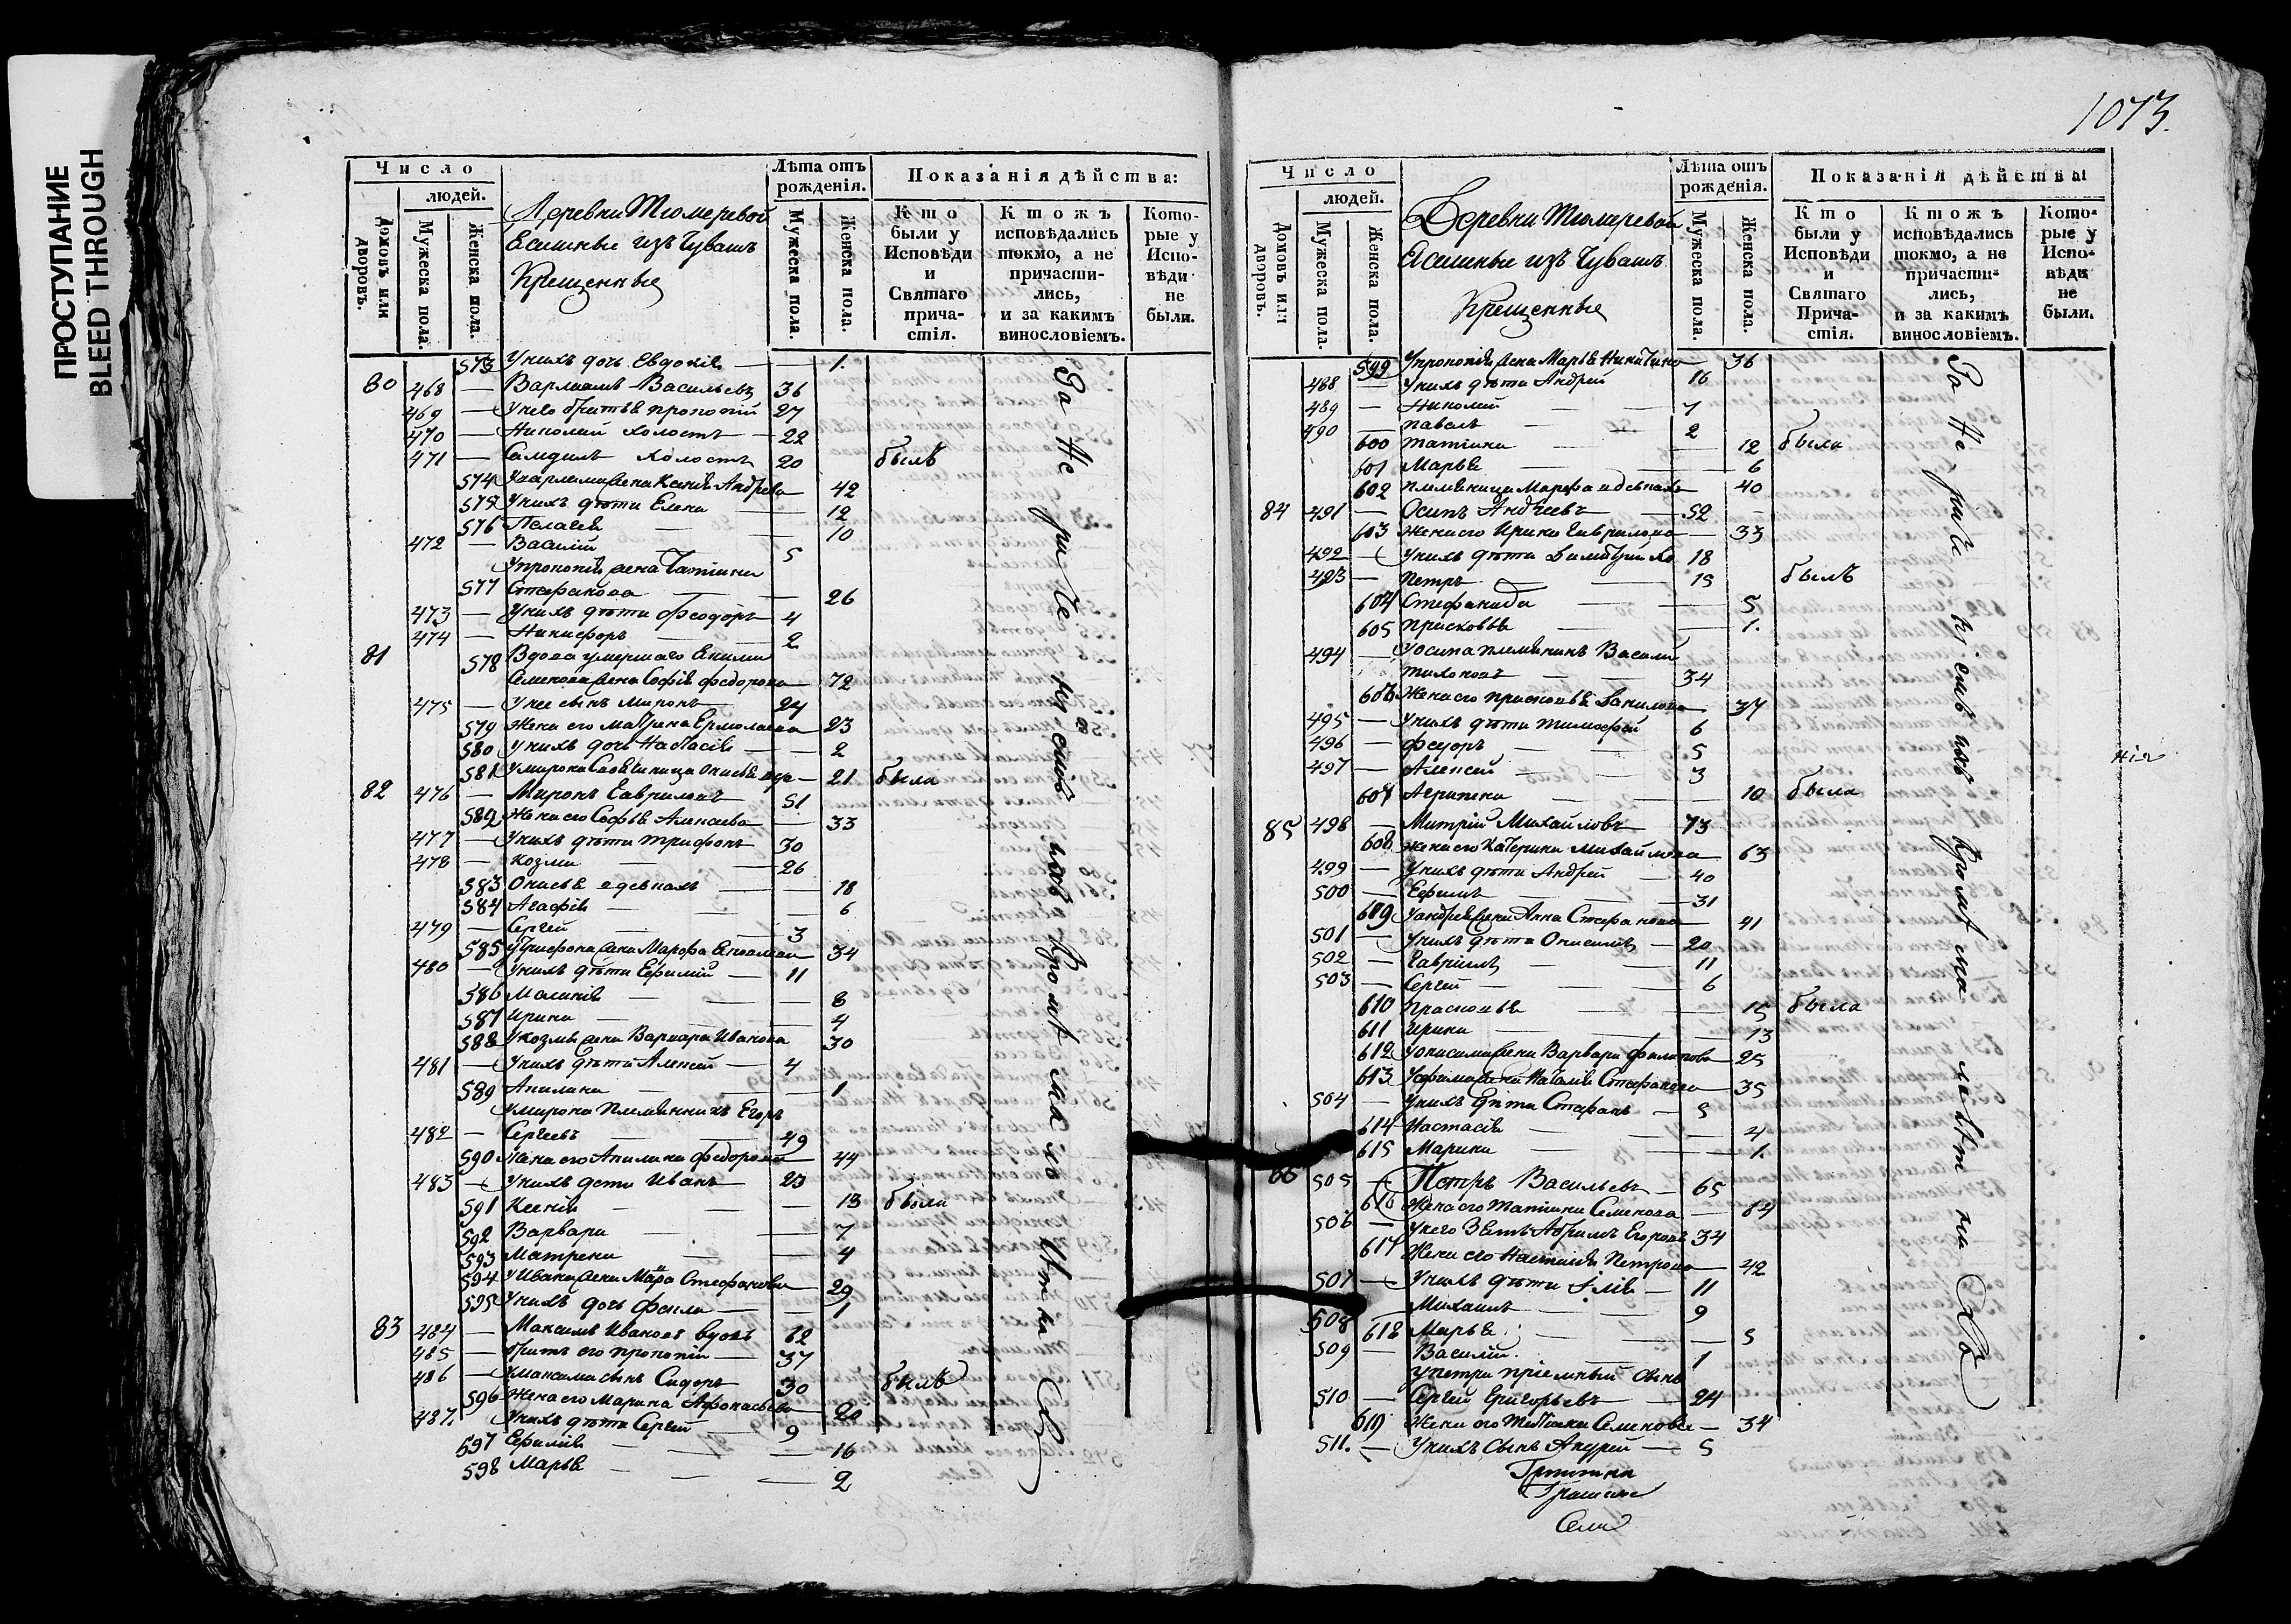 ПРОСТУПАНИЕ
BLEED THROUGH
1073.
Число
людей.
Домовъ или дворовъ.
Мужеска пола.
Женска пола.
Деревни Тюмеревой
Ясашные изъ Чувашъ
Крещенные
Лѣта отъ рожденія.
Мужеска пола.
Женска пола.
Показанія дѣйства:
Кто были у Исповѣди и Святаго причастія.
Ктожъ исповѣдались токмо, а не причастились, и за какимъ винословіемъ.
Которые у Исповѣди не были.
573 Унихъ дочь Евдокія 1.
80 468 Варлаамъ Васильевъ 36
469 Унего братья прокопій 27
470 Николай холостъ 22
471 Самуилъ холостъ 20 былъ
574 Уварлама жена Ксенія Андреева 42
575 Унихъ дѣти Елена 12
576 Пелагея 10
472 Василій 5
Упрокопія жена Татіана
577 Стефанова 26
473 Унихъ дѣти Феодоръ 4
474 Никифоръ 2
81 578 Вдова умершаго Екима
Семенова жена Софія федорова 72
475 Унее сынъ Миронъ 24
579 Жена его Матрена Ермолаева 23
580 Унихъ дочь Настасія 2
581 Умирона Своячиница Анисья 21 была
82 476 Миронъ Гавриловъ 51
582 Жена его Софья Алексеева 33
477 Унихъ дѣти трифонъ 30
478 козма 26
583 Анисья вдевкахъ 18
584 Агафія 6
479 Сергей 3
585 Утрифона жена Марфа 34
480 Унихъ дѣти Ефимій 11
586 Маланія 8
587 Ирина 4
588 Укозмы жена Варвара Иванова 30
481 Унихъ дѣти Алексей 4
589 Акилина 1
Умирона Племянникъ Егоръ
482 Сергеевъ 49
590 Жена его Акилина федорова 44
483 Унихъ дети Иванъ 23
591 Ксенія 13 была
592 Варвара 7
593 Матрена 4
594 Уивана жена Мавра Стефанова 29
595 Унихъ дочь Фекла 1
83 484 Максимъ Ивановъ вдовъ 62
485 братъ его прокопій 37
486 Умаксима сынъ Сидоръ 30 былъ
596 Жена его Марина Афонасьева 20
487. Унихъ дѣти Сергей 9
597 Ефимія 16
598 Марья 2
Число
людей.
Домовъ или дворовъ.
Мужеска пола.
Женска пола.
Деревни Тюмеревой
Ясашные изъ Чувашъ
Крещенные
Лѣта отъ рожденія.
Мужеска пола.
Женска пола.
Показанія дѣйства
Кто были у Исповѣди и Святаго Причастія.
Ктожъ исповѣдались токмо, а не причастились, и за какимъ винословіемъ.
Которые у Исповѣди не были.
599 Упрокопія жена Марья Никитина 36
488 Унихъ дѣти Андрей 16
489 Николай 7
490 павелъ 2
600 татіана 12 была
601 Марья 6
602 племяница Марфа вдевкахъ 40
84 491 Осипъ Андреевъ 52
603 Жена его Ирина Гаврилова 33
492 Унихъ дѣти Димитрій хо 18
493 Петръ 15 былъ
604 Стефанида 5
605 прасковья 1.
494 Уосипа племянникъ Василій
тихоновъ 34
606 Жена его прасковья Данилова 37
495 Унихъ дѣти тимофей 6
496 федоръ 5
497 Алексей 3
607 Агрипена 10 была
85 498 Митрій Михайловъ 73
608 жена его Катерина михайлова 63
499 Унихъ дѣти Андрей 40
500 Ефимъ 31
609 Уандрея жена Анна Стефанова 41
501 Унихъ дѣти Онисимъ 20
502 Гавріилъ 11
503 Сергей 6
610 Прасковья 15 была
611 ирина 13
612 Уонисима жена Варвара филипова 25
613 Уефима жена Наталья Стефанова 35
504 Унихъ дѣти Стефанъ 5
614 Настасія 4
615 Марина 1.
86 505 Петръ Васильевъ 65
616 Жена его татіана Семенова 64
506 Унего Зять Абрамъ Егоровъ 34
617 Жена его Настасія Петрова 42
507 Унихъ дѣти Илія 11
508 Михаилъ 9
618 Марья 5
509 Василій 1
Упетра пріемный сынъ
510 Сергей Григорьевъ 24
619 Жена его татіана Семенова 34
511. Унихъ сынъ Андрей 5